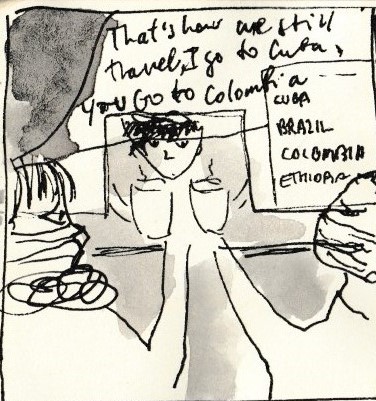 That's how we still
travel, I go to Cuba,
you Go to Colombia
CUBA
BRAZIL
COLOMBIA
ETHIOPIA